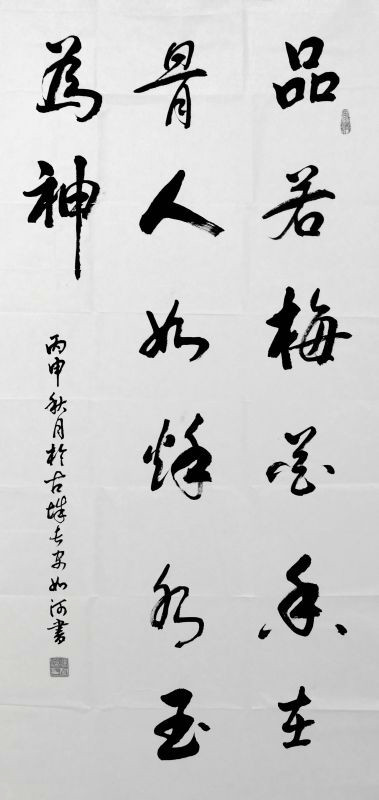 品若梅花香在
骨人如秌水玉
為神
丙申秋月於古城长安如河書